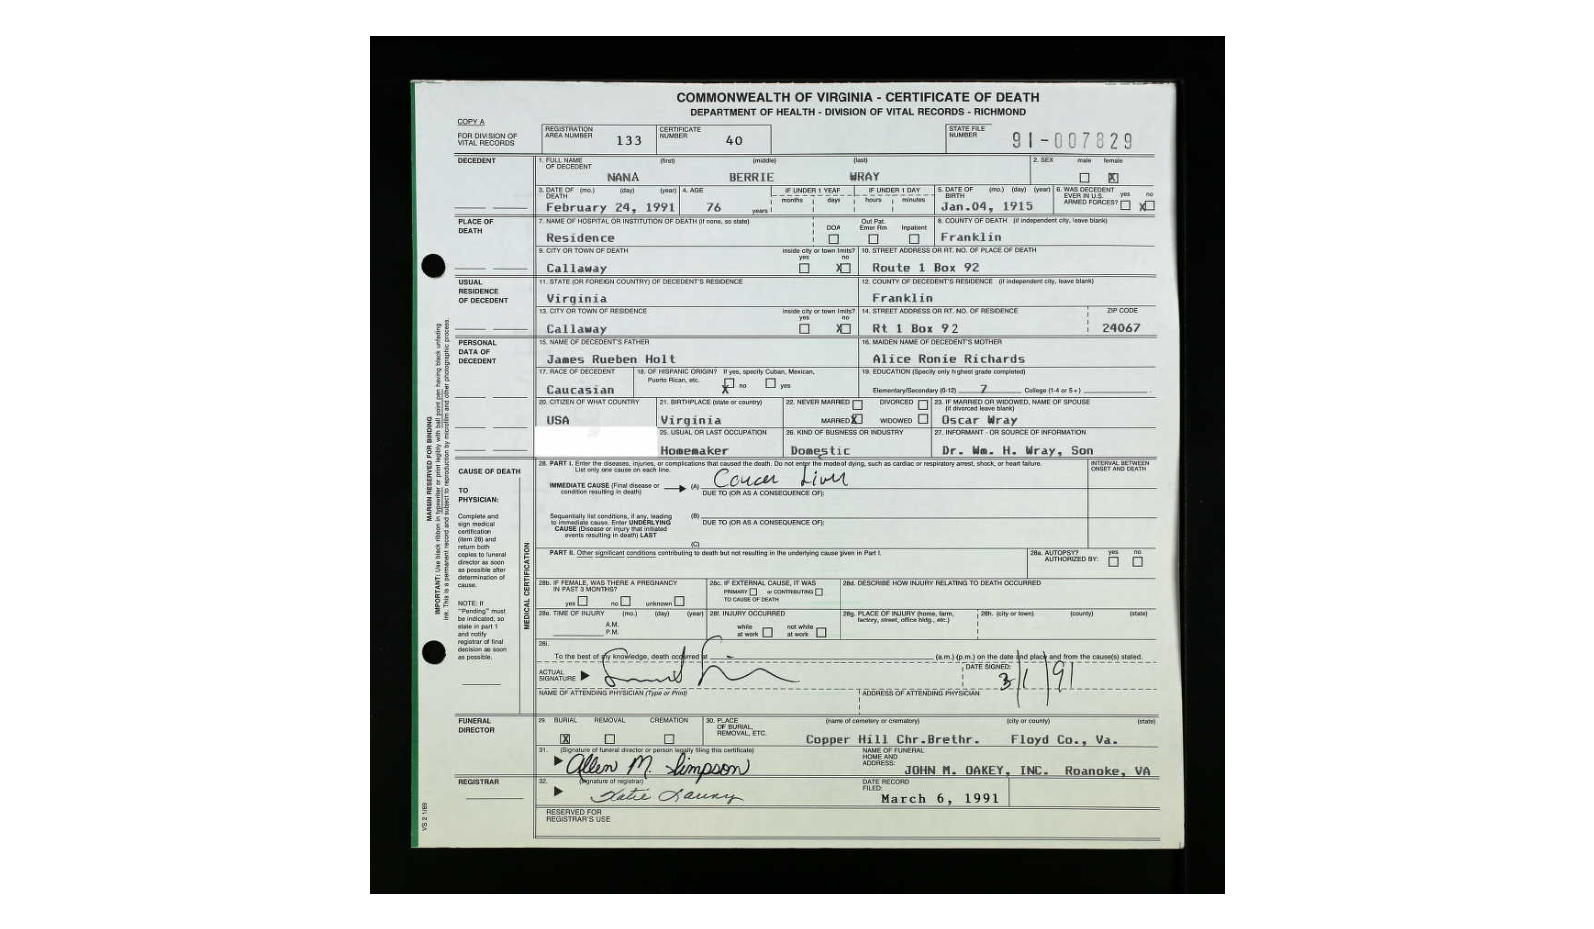 COMMONWEALTH OF VIRGINIA - CERTIFICATE OF DEATH
DEPARTMENT OF HEALTH - DIVISION OF VITAL RECORDS - RICHMOND
COPY A
FOR DIVISION OF
VITAL RECORDS
REGISTRATION
AREA NUMBER 133
CERTIFICATE
NUMBER 40
STATE FILE
NUMBER 91-007829
DECEDENT
1. FULL NAME (first) (middle) (last)
OF DECEDENT
NANA BERRIE WRAY
2. SEX male female
X
3. DATE OF (mo.) (day) (year)
DEATH
February 24, 1991
4. AGE
76 years
IF UNDER 1 YEAR
months days
IF UNDER 1 DAY
hours minutes
5. DATE OF (mo.) (day) (year)
BIRTH
Jan.04, 1915
6. WAS DECEDENT
EVER IN U.S.
ARMED FORCES? yes no
X
PLACE OF
DEATH
7. NAME OF HOSPITAL OR INSTITUTION OF DEATH (if none, so state)
Residence
DOA
Out Pat.
Emer Rm
Inpatient
8. COUNTY OF DEATH (if independent city, leave blank)
Franklin
9. CITY OR TOWN OF DEATH
Callaway
inside city or town limits?
yes no
X
10. STREET ADDRESS OR RT. NO. OF PLACE OF DEATH
Route 1 Box 92
USUAL
RESIDENCE
OF DECEDENT
11. STATE (OR FOREIGN COUNTRY) OF DECEDENT'S RESIDENCE
Virginia
12. COUNTY OF DECEDENT'S RESIDENCE (if independent city, leave blank)
Franklin
13. CITY OR TOWN OF RESIDENCE
Callaway
inside city or town limits?
yes no
X
14. STREET ADDRESS OR RT. NO. OF RESIDENCE
Rt 1 Box 92
ZIP CODE
24067
PERSONAL
DATA OF
DECEDENT
15. NAME OF DECEDENT'S FATHER
James Rueben Holt
16. MAIDEN NAME OF DECEDENT'S MOTHER
Alice Ronie Richards
17. RACE OF DECEDENT
Caucasian
18. OF HISPANIC ORIGIN? If yes, specify Cuban, Mexican,
Puerto Rican, etc.
X no yes
19. EDUCATION (Specify only highest grade completed)
Elementary/Secondary (0-12) 7 College (1-4 or 5+)
20. CITIZEN OF WHAT COUNTRY
USA
21. BIRTHPLACE (state or country)
Virginia
22. NEVER MARRIED DIVORCED
MARRIED X WIDOWED
23. IF MARRIED OR WIDOWED, NAME OF SPOUSE
(if divorced leave blank)
Oscar Wray
25. USUAL OR LAST OCCUPATION
Homemaker
26. KIND OF BUSINESS OR INDUSTRY
Domestic
27. INFORMANT - OR SOURCE OF INFORMATION
Dr. Wm. H. Wray, Son
CAUSE OF DEATH
TO
PHYSICIAN:
Complete and
sign medical
certification
(item 28) and
return both
copies to funeral
director as soon
as possible after
determination of
cause.
NOTE: If
"Pending" must
be indicated, so
state in part 1
and notify
registrar of final
decision as soon
as possible.
MEDICAL CERTIFICATION
28. PART I. Enter the diseases, injuries, or complications that caused the death. Do not enter the mode of dying, such as cardiac or respiratory arrest, shock, or heart failure.
List only one cause on each line.
INTERVAL BETWEEN
ONSET AND DEATH
IMMEDIATE CAUSE (Final disease or
condition resulting in death)
(A) Cancer Liver
DUE TO (OR AS A CONSEQUENCE OF):
Sequentially list conditions, if any, leading
to immediate cause. Enter UNDERLYING
CAUSE (Disease or injury that initiated
events resulting in death) LAST
(B)
DUE TO (OR AS A CONSEQUENCE OF):
(C)
PART II. Other significant conditions contributing to death but not resulting in the underlying cause given in Part I.
28a. AUTOPSY?
AUTHORIZED BY: yes no
28b. IF FEMALE, WAS THERE A PREGNANCY
IN PAST 3 MONTHS?
yes no unknown
28c. IF EXTERNAL CAUSE, IT WAS
PRIMARY or CONTRIBUTING
TO CAUSE OF DEATH
28d. DESCRIBE HOW INJURY RELATING TO DEATH OCCURRED
28e. TIME OF INJURY (mo.) (day) (year)
A.M.
P.M.
28f. INJURY OCCURRED
while
at work
not while
at work
28g. PLACE OF INJURY (home, farm,
factory, street, office bldg., etc.)
28h. (city or town) (county) (state)
28i.
To the best of my knowledge, death occurred at (a.m.) (p.m.) on the date and place and from the cause(s) stated.
ACTUAL
SIGNATURE
DATE SIGNED:
3/1/91
NAME OF ATTENDING PHYSICIAN (Type or Print)
ADDRESS OF ATTENDING PHYSICIAN
FUNERAL
DIRECTOR
29. BURIAL REMOVAL CREMATION
X
30. PLACE
OF BURIAL,
REMOVAL, ETC.
(name of cemetery or crematory) (city or county) (state)
Copper Hill Chr.Brethr. Floyd Co., Va.
31. (Signature of funeral director or person legally filing this certificate)
Allen M. Simpson
NAME OF FUNERAL
HOME AND
ADDRESS:
JOHN M. OAKEY, INC. Roanoke, VA
REGISTRAR
32. (signature of registrar)
Katie
DATE RECORD
FILED:
March 6, 1991
RESERVED FOR
REGISTRAR'S USE
MARGIN RESERVED FOR BINDING
IMPORTANT: Use black ribbon in typewriter or print legibly with ball point pen having black unfading
ink. This is a permanent record and subject to reproduction by microfilm and other photographic process.
VS 2 1/89